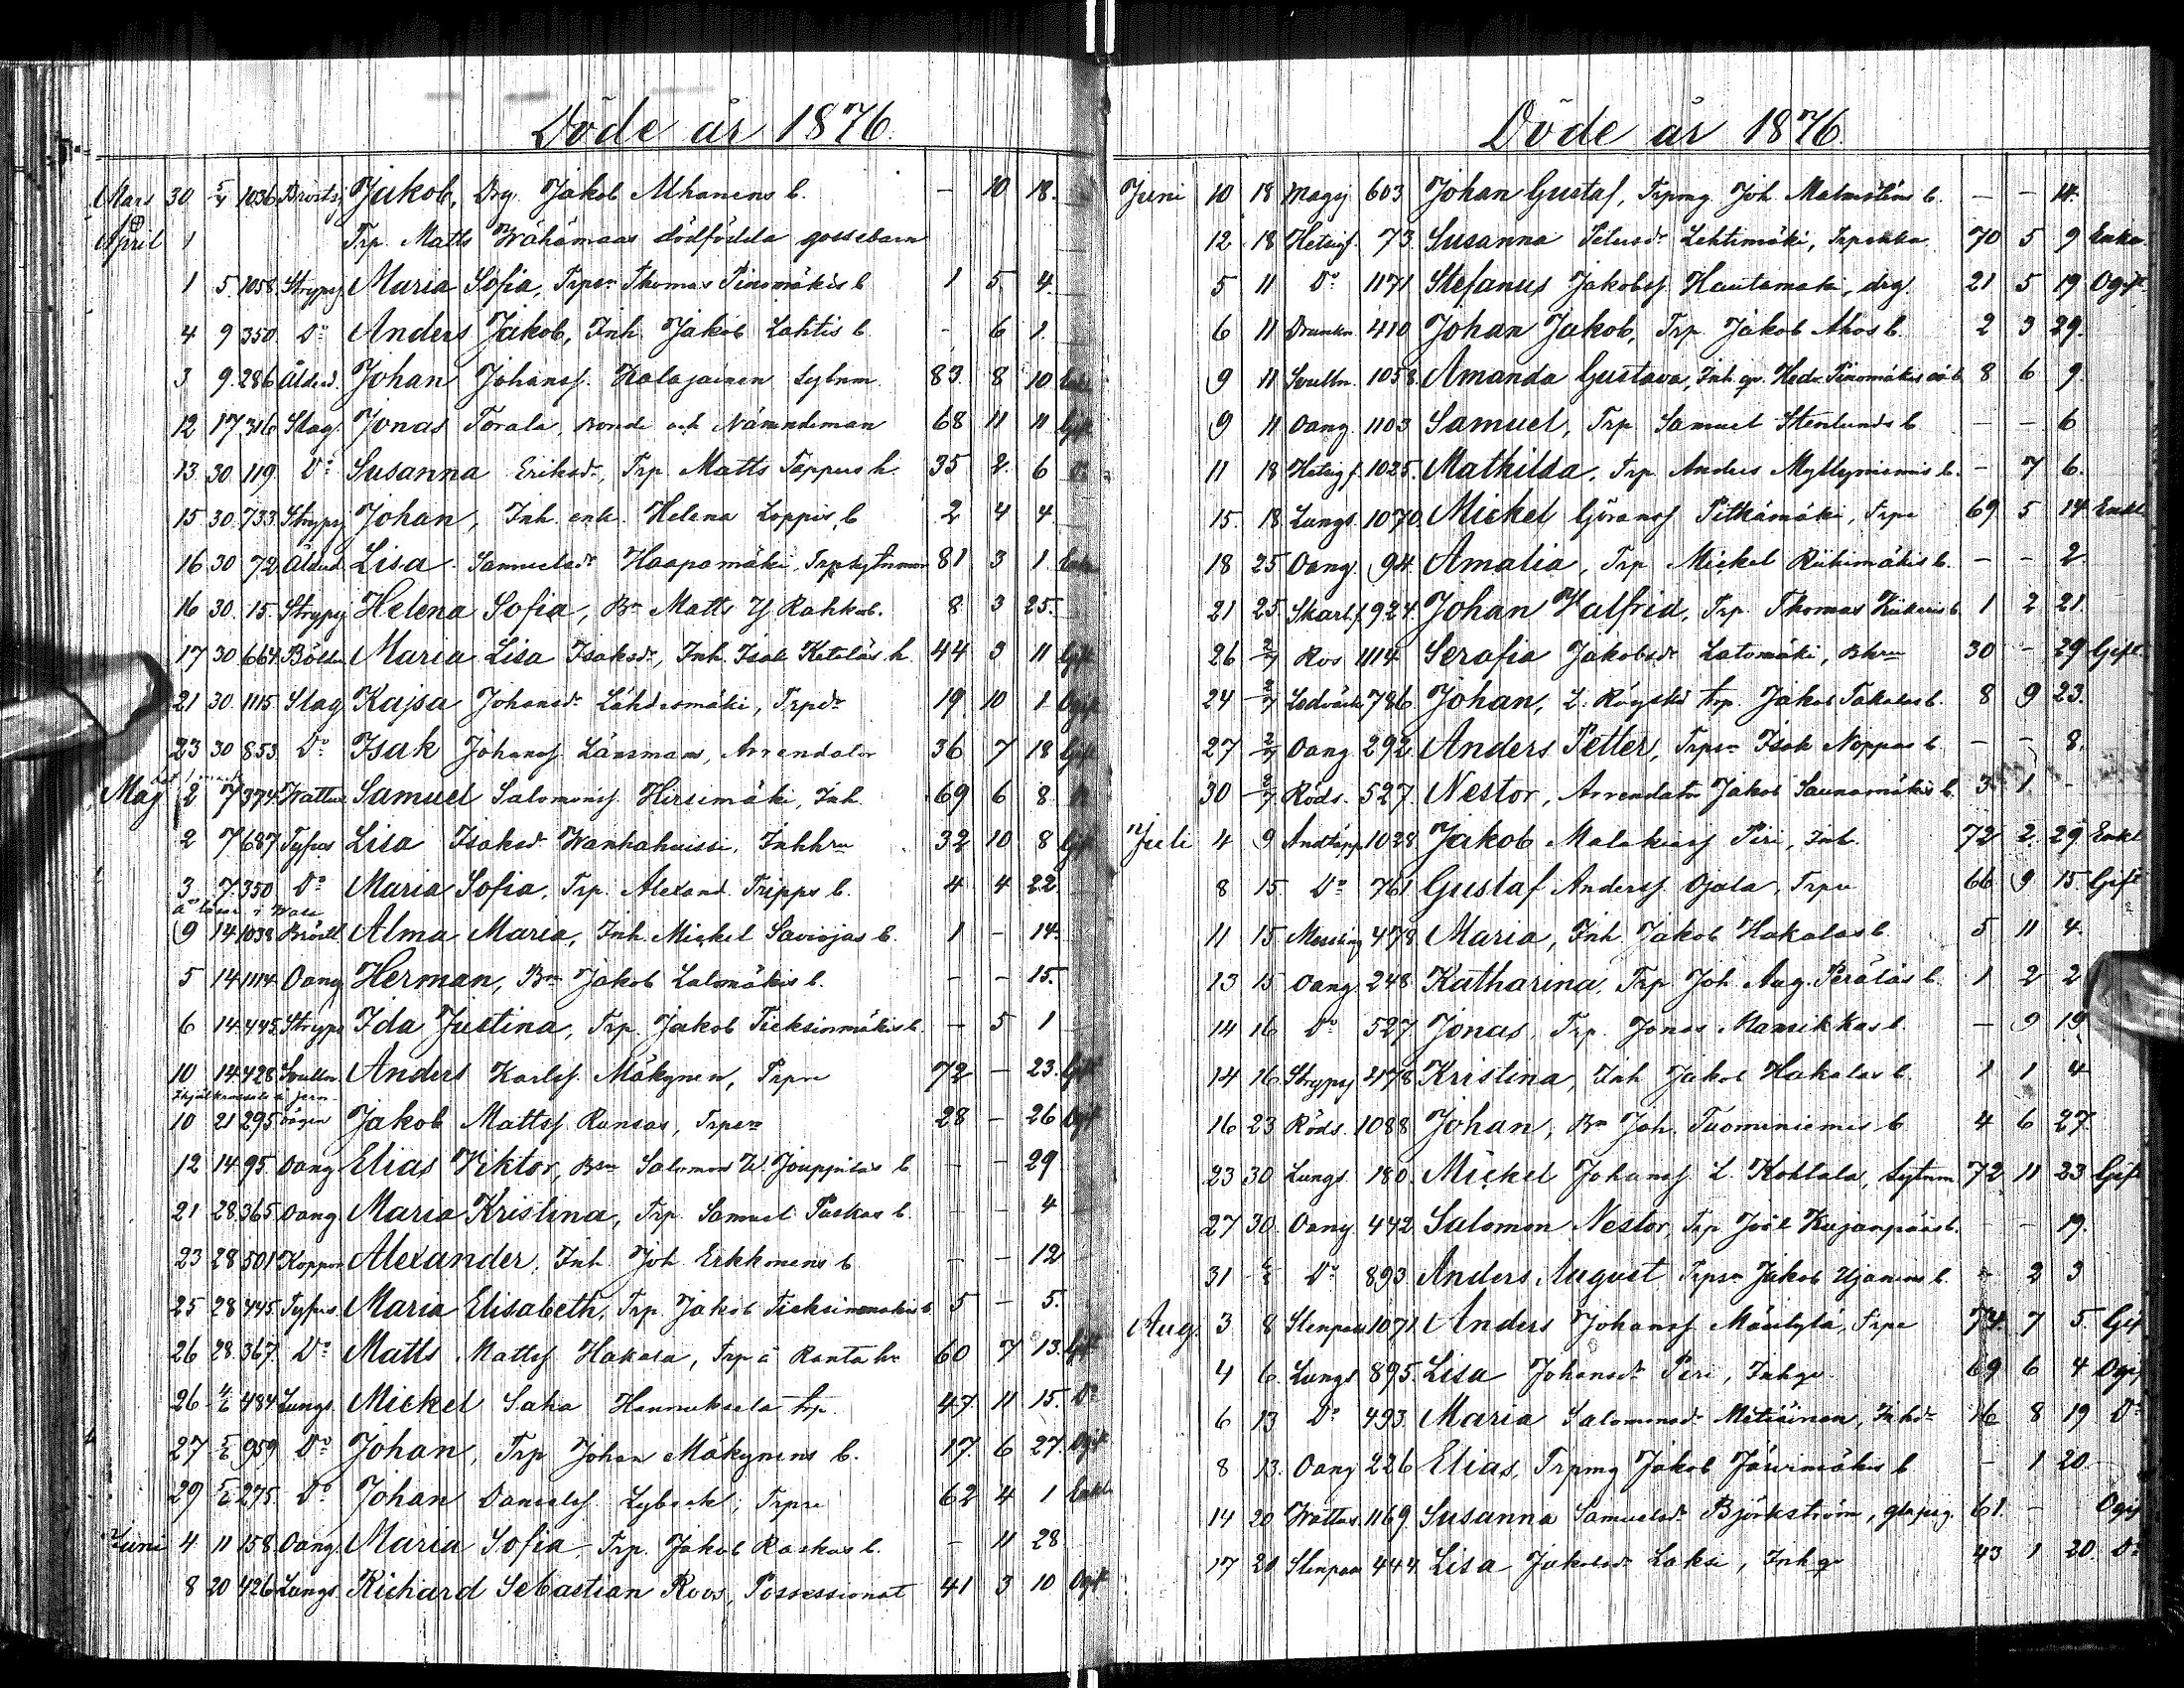 Döde år 1876.
Mars 30 5/4 1036 Jakob, Drg. Jakob Alhonens b. – 10 18.
April 1 Trp. Matts Wähämaas dödfödda gossebarn
1 5. 1058. Strypsj Maria Sofia, Thomas Tinomäkis b 1 5 4.
4 9 350 Do Anders Jakob, Inh. Jakob Lahtis b. – 6 1.
3 9. 286 Ålderd. Johan Johanss. Kalajainen Sytnm. 83 8 10
12 17 316 Slag. Jonas Torala, Bonde och Nämndeman 68 11 11 Gift
13 30 119. Do Susanna Eriksdr, Trp. Matts Toppus h. 35 2 6
15 30. 733. Strypsj Johan, Inh. enk. Helena Loppis b 2 4 4.
16 30 72. Ålderd. Lisa Samuelsdr Haapamäki, 81 3 1 Enka
16 30. 15. Strypsj Helena Sofia, Bn Matts Y Rahkob. 8 3 25.
17 30 664. Maria Lisa Isaksdr, Inh. Isak Ketoläs h. 44 3 11 Gift
21 30. 1115. Slag Kajsa Johansdr Lähdesmäki, Trpdr 19. 10 1 Ogift
23 30 853. Do Isak Johanss. Länsmans, Arrendator 36 7 18 Gift
Maj 2 7 374. Wattus Samuel Salomonss. Hirsimäki, Inh. 69 6 8
2 7 687 Tyfus Lisa Isaksdr Wanhahuissi, Inhhru 32 10 8 Gift
3. 7. 350 Do Maria Sofia, Trp. Alexand. Tripps b. 4 4 22.
9 14 1038 Alma Maria, Inh. Mickel Saviojas b. 1 – 14.
5 14 1114. Oang Herman, Bn Jakob Latomäkis b. – – 15.
6 14. 445. Strypsj Ida Justina, Trp. Jakob Tieksinmäkis b. – 5 1
10 14 428 Svulln. Anders Karlss. Mäkynen, Trpre 72 – 23. Gift
10 21 295 Jakob Mattss. Ransas, Trpsn 28 – 26 Ogift
12 14 95. Oang Elias Viktor, Salomon W. Jouppilas b – – 29
21 28. 365. Oang Maria Kristina, Trp. Samuel Paskas b. – – 4
23 28 501 Koppor Alexander, Inh. Joh. Erkkonens b – – 12
25 28 445. Tyfus. Maria Elisabeth, Trp. Jakob Tieksinmäkis b 5 – 5.
26 28. 367. Do Matts Mattss. Hakala, Trp å Ranta hn 60 7 13. Gift
26 4/6 484 Lungs. Mickel Saha Hannuksela trp. 47. 11 15. Do
27 5/6 959 Do Johan, Trp. Johan Mäkynens b. 17. 6 27. Ogift
29 5/6 275. Do Johan Danielss. Lybeck, Trpre 62 4 1 Enkl.
Juni 4 11 158. Oang. Maria Sofia, Trp. Jakob Raskas b. – 11 28.
8 20 426 Lungs. Richard Sebastian Roos, Possessionat 41 3 10 Ogift
Döde år 1876.
Juni 10 18 Magsj 603. Johan Gustaf, Trpmg Joh. Malmströms b. – – 14.
12 18 Hetsigf. 73. Susanna Petersdr Lehtimäki, Trpenka 70 5 9 Enka
5 11 Do 1171 Stefanus Jakobss. Hautamäki, drg. 21 5 19 Ogift
6 11 Drunkn. 410 Johan Jakob, Trp. Jakob Ahos b. 2 3 29.
9 11 Svulln. 1058. Amanda Gustava, Inh. qv. Hedv. Tinomäkis oä b 8 6 9.
9 11 Oang. 1103 Samuel, Trp. Samuel Stenlunds b – – 6
11 18 Hetsigf. 1025. Mathilda, Trp. Anders Myllyniemis b. – 7 6.
15. 18. Lungs. 1070. Mickel Göranss. Pitkämäki, Trpre 69 5 14 Enkl
18 25 Oang. 94. Amalia, Trp. Mickel Riihimäkis b. – – 2.
21 25 Skarl.f. 924. Johan Walfrid, Trp. Thomas Kiikeris b. 1 2 21.
26 2/7 Ros 1114. Serafia Jakobsdr Latomäki, Bhru 30 – 29 Gift
24 2/7 786. Johan, L. trp. Jakob Takalas b. 8 9 23.
27 2/7 Oang 292. Anders Petter, Isak Noppas b. – – 8.
30 2/7 Röds. 527. Nestor, Arrendator Jakob Saunamäkis b. 3 1. –
Juli 4 9 Andtäpp. 1028. Jakob Malakiass. Piri, Inh. 72 2. 29. Enkl
8 15. Do 761 Gustaf Anderss. Ojala, Trpre 66 9 15. Gift
11 15 Messling 478. Maria, Inh. Jakob Hakalas b. 5 11 4.
13 15 Oang. 248. Katharina, Trp. Joh. Aug. Perälas b. 1 2 2
14 16 Do 527. Jonas, Trp. Jonas Mansikkas b. – 9 19
14 16 Strypsj 478 Kristina, Inh. Jakob Hakalas b. 1 1 4
16 23 Röds. 1088 Johan, Bn Joh. Tuominiemis b. 4 6 27.
23 30 Lungs. 180. Mickel Johanss. L. Kohtala, Sytnm 72. 11 23 Gift
27 30. Oang 442. Salomon Nestor, Trp. Joel Kujanpääs b. – – 19.
31 Do 893. Anders August, Jakob Ujanens b. – 2 3
Aug. 3 8 Stenpass. 1071. Anders Johanss. Mäenpää, Trpre 74. 7 5. Gift
4 6. Lungs 895. Lisa Johansdr Piri, Inhqv. 69 6 4 Ogift
6 13 Do 493. Maria Salomonsdr Metiäinen, Inhdr 16 8 19 Do
8 13. Oang 226 Elias, Trpmg Jakob Järvimäkis b – 1 20
14 20 Wattus. 1169. Susanna Samuelsdr Björkström, 61. – Ogift
17 20 Stenpass 444. Lisa Jakobsdr Laksi, Inhqv 43 1 20. Do